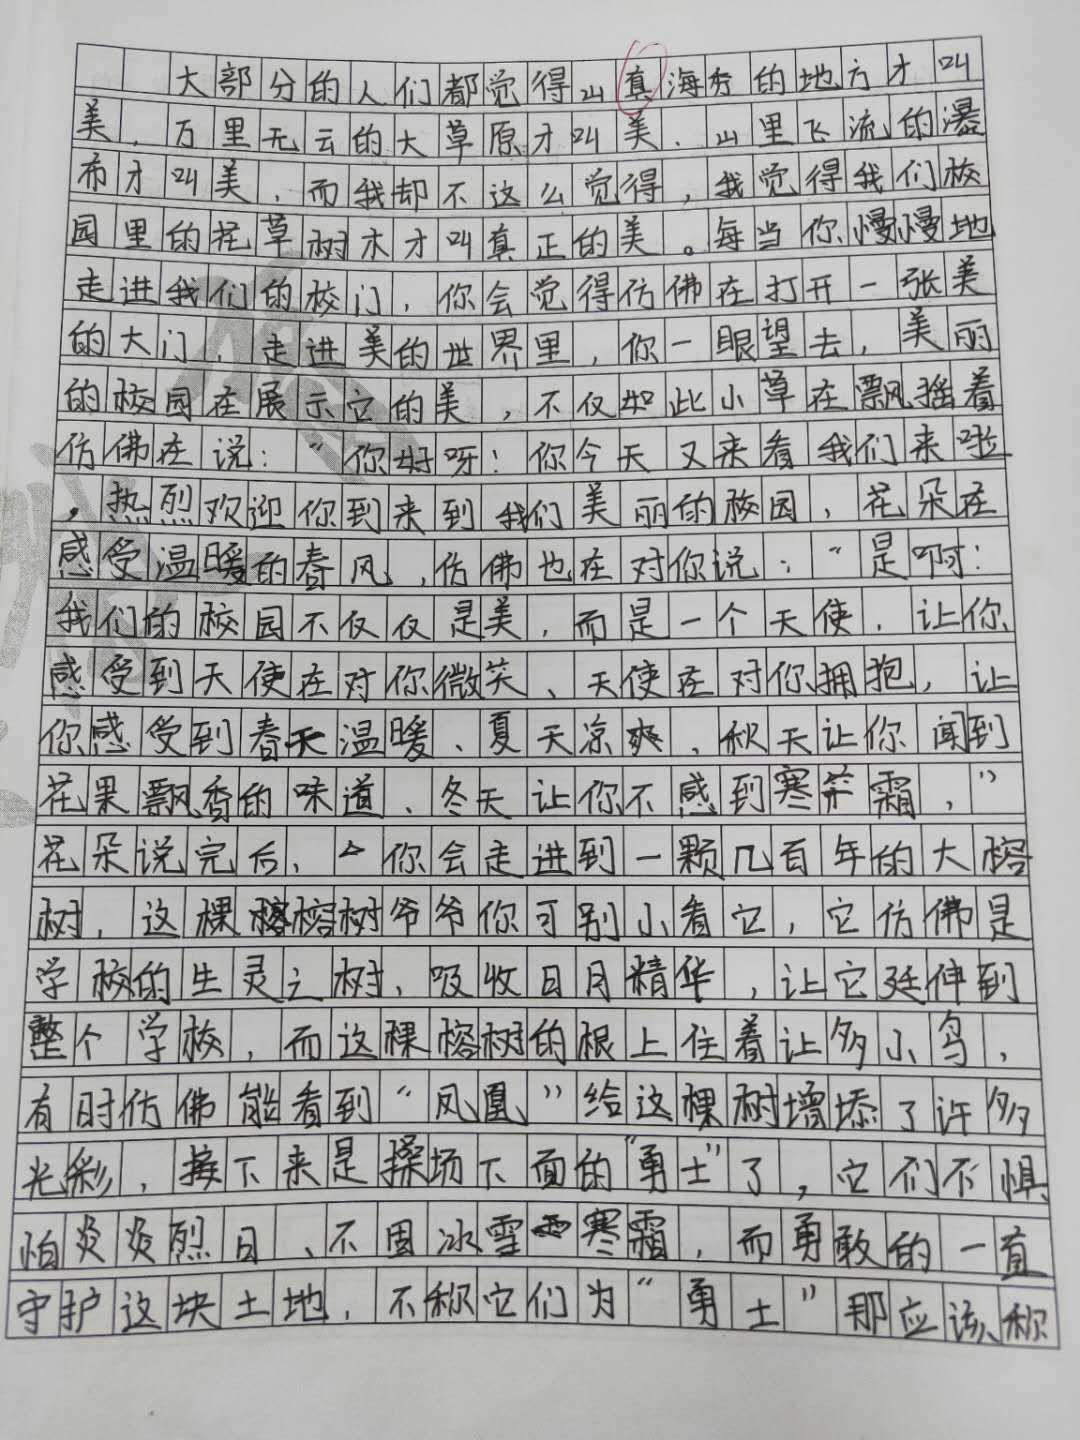 大部分的人们都觉得山真海秀的地方才叫
美，万里无云的大草原才叫美，山里飞流的瀑
布才叫美，而我却不这么觉得，我觉得我们校
园里的花草树木才叫真正的美。每当你慢慢地
走进我们的校门，你会觉得仿佛在打开一张美
的大门，走进美的世界里，你一眼望去，美丽
的校园在展示它的美，不仅如此小草在飘摇着
仿佛在说：“你好呀！你今天又来看我们来啦
，热烈欢迎你到来到我们美丽的校园，花朵在
感受温暖的春风，仿佛也在对你说：“是啊：
我们的校园不仅仅是美，而是一个天使，让你
感受到天使在对你微笑、天使在对你拥抱，让
你感受到春天温暖、夏天凉爽，秋天让你闻到
花果飘香的味道、冬天让你不感到寒霜，”
花朵说完后，你会走进到一颗几百年的大榕
树，这棵榕树爷爷你可别小看它，它仿佛是
学校的生灵之树，吸收日月精华，让它延伸到
整个学校，而这棵榕树的根上住着让多小鸟，
有时仿佛能看到“凤凰”给这棵树增添了许多
光彩，接下来是操场下面的“勇士”了，它们不惧
怕炎炎烈日、不固冰雪寒霜，而勇敢的一直
守护这块土地，不称它们为“勇士”那应该称